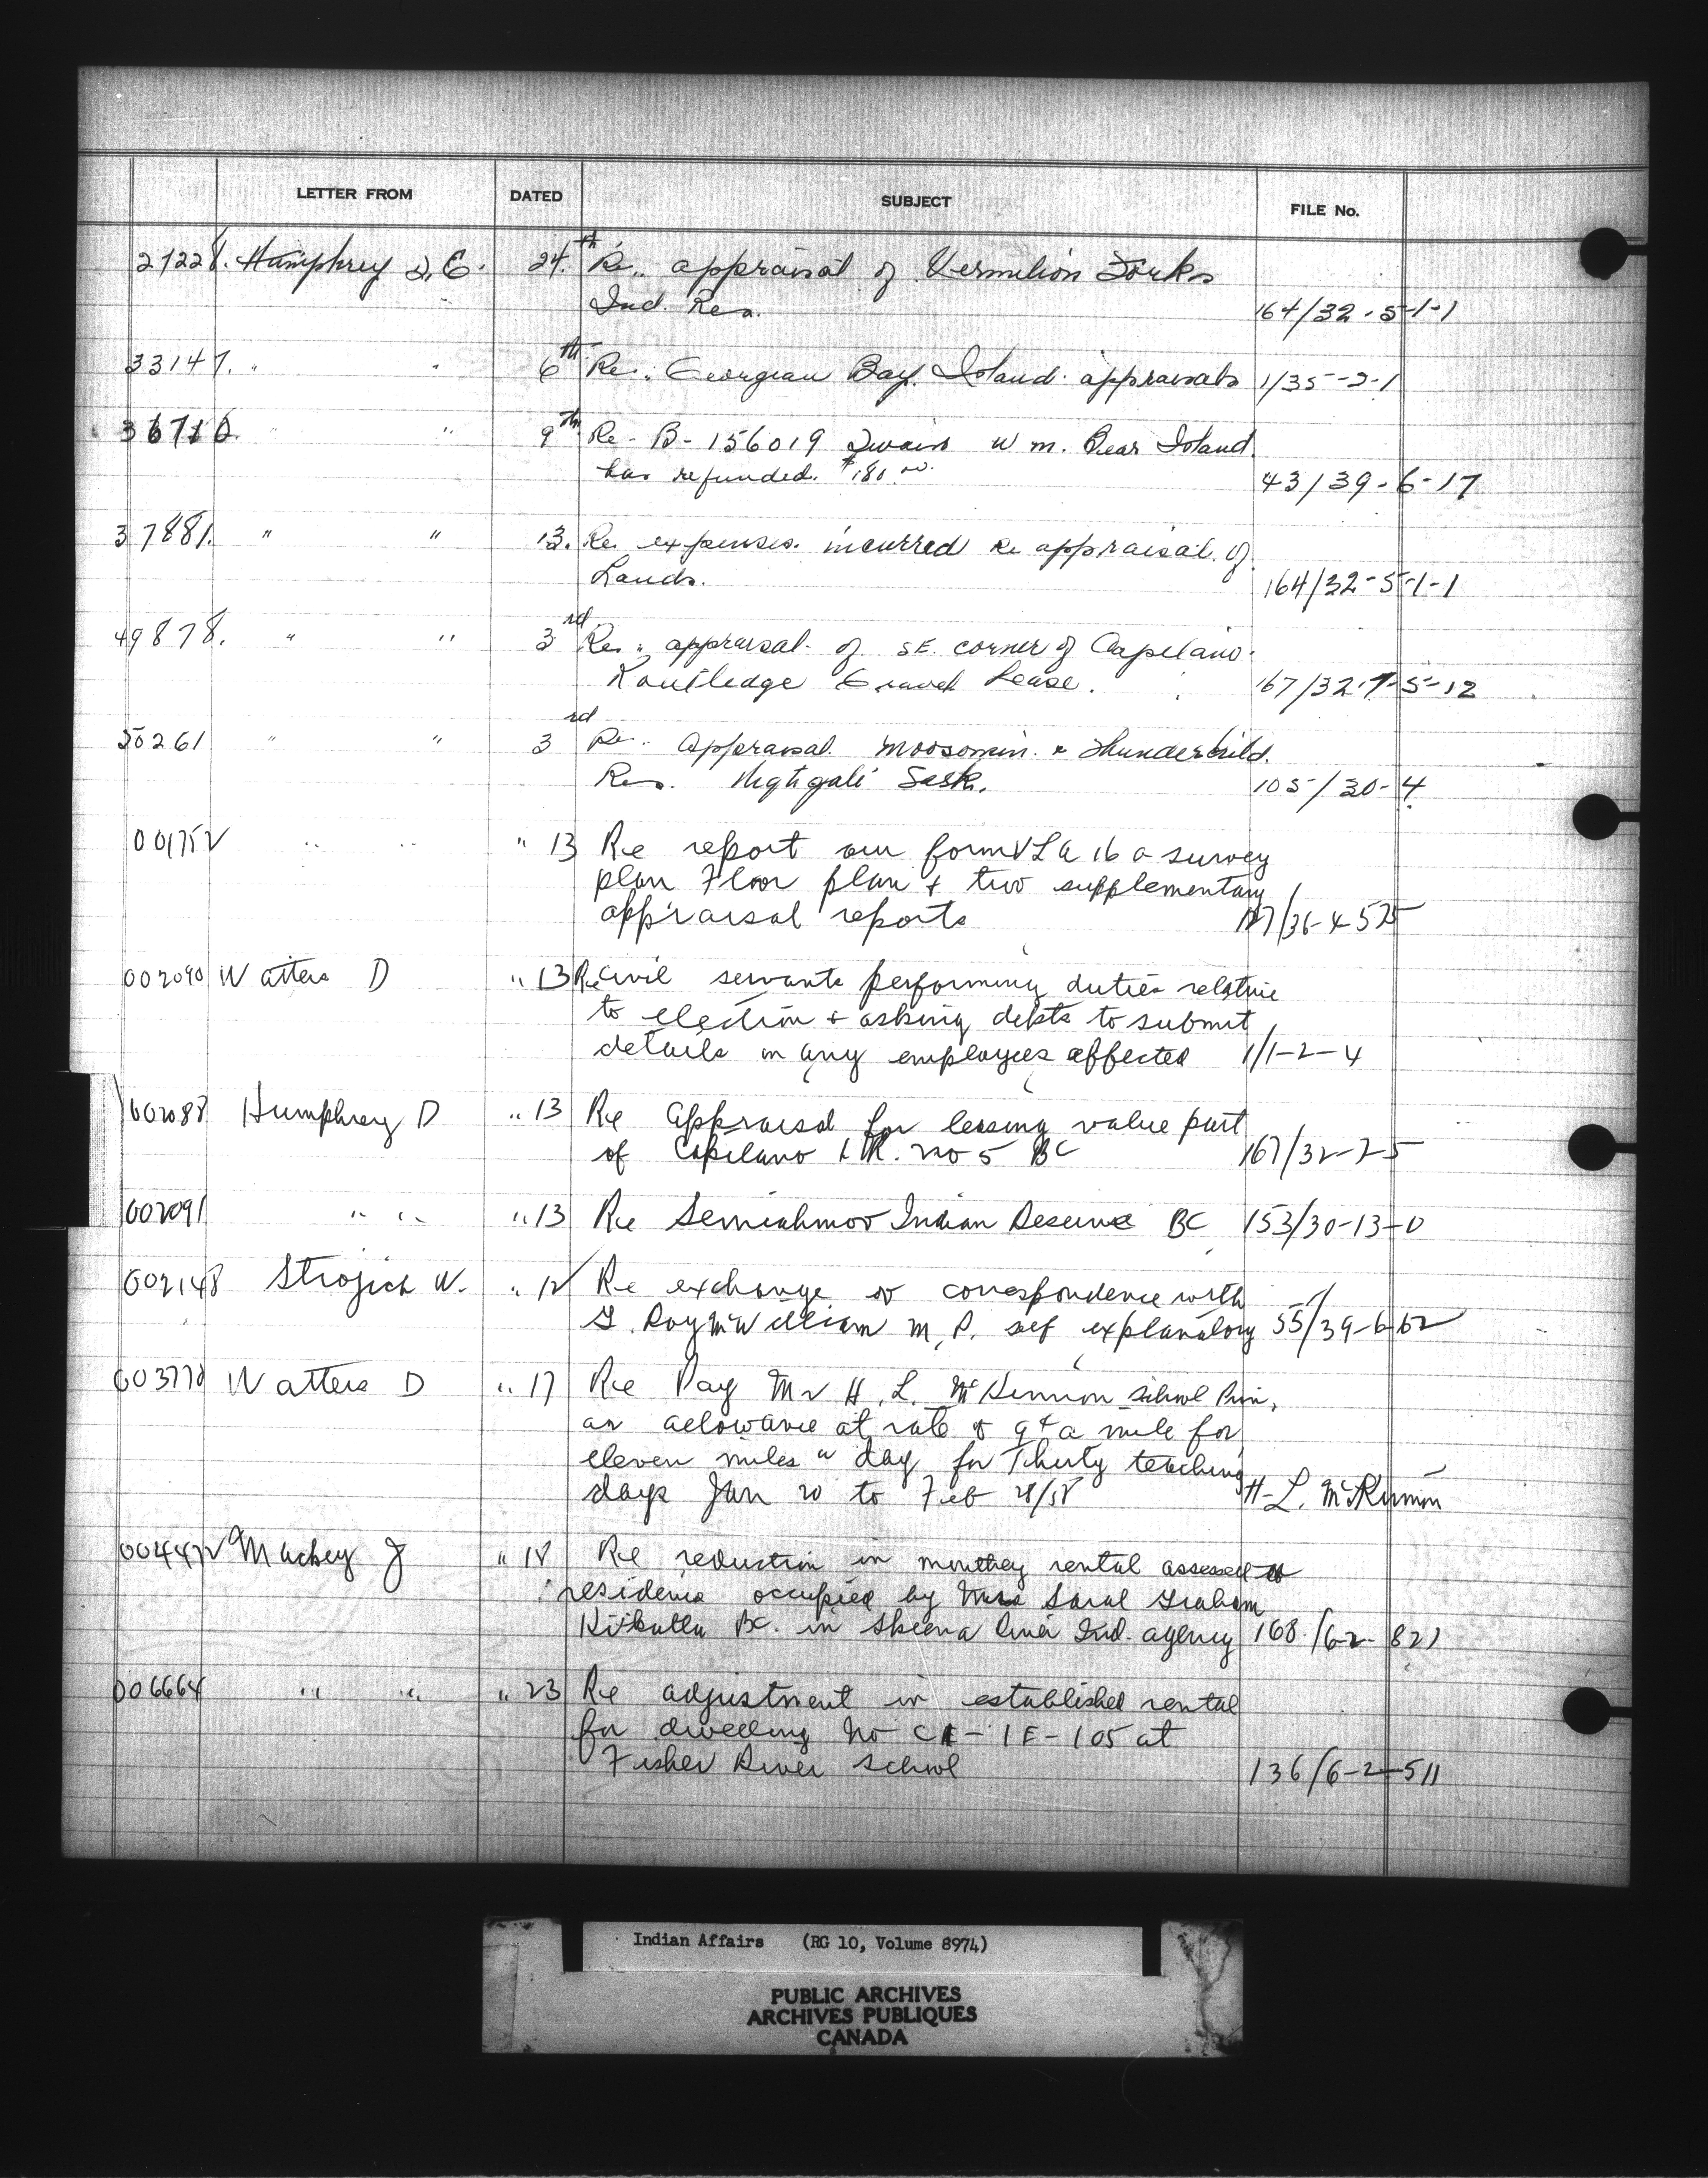 LETTER FROM DATED SUBJECT FILE No.
21228. Humphrey D.E. 24.th Re.. appraisal of Vermilion Forks
Ind. Res. 164/32-5-1-1
33147. " " 6th Re.. Georgian Bay. Island. appraisals 1/35-2-1
" " 9th Re - B - 156019 Twain Wm. Bear Island
has refunded. $180.00 43/39-6-17
37881. " " 13. Re. expenses. incurred re appraisal. of
Lands. 164/32-5-1-1
49878. " " 3rd Re.. appraisal. of SE. corner of Capilano.
Routledge Gravel Lease. 167/32-7-5-12
50261 " " 3rd Re.. Appraisal. Moosomin. & Thunderchild.
Res. Sask. 105/30-4
001752 " " " 13 Re report our form VLA 16 a survey
plan Floor plan & two supplementary
appraisal reports
002090 Watters D " 13 Re civil servants performing duties relative
to election & asking depts to submit
details on any employees affected 1/1-2-4
002088 Humphrey D " 13 Re appraisal for leasing value part
of Capilano I.R. no 5 BC 167/32-7-5
002091 " " " 13 Re Semiahmoo Indian Reserve BC 153/30-13-0
002148 W. " 12 Re exchange of correspondence with
G. Roy McWilliam M.P. self explanatory 55/39-6-62
003770 Watters D " 17 Re Pay Mr H. L. McKinnon School Prin,
an allowance at rate of 9¢ a mile for
eleven miles a day for Thirty teaching
days Jan 20 to Feb 28/58 H-L. McKinnon
004472 Mackey J " 18 Re reduction in monthly rental assessed to
residence occupied by Miss Saral Graham
Kitkatla BC. in Skeena River Ind. agency 168/6-2-821
006664 " " " 23 Re adjustment in established rental
for dwelling No CK-1E-105 at
Fisher River School 136/6-2-511
Indian Affairs (RG 10, Volume 8974)
PUBLIC ARCHIVES
ARCHIVES PUBLIQUES
CANADA